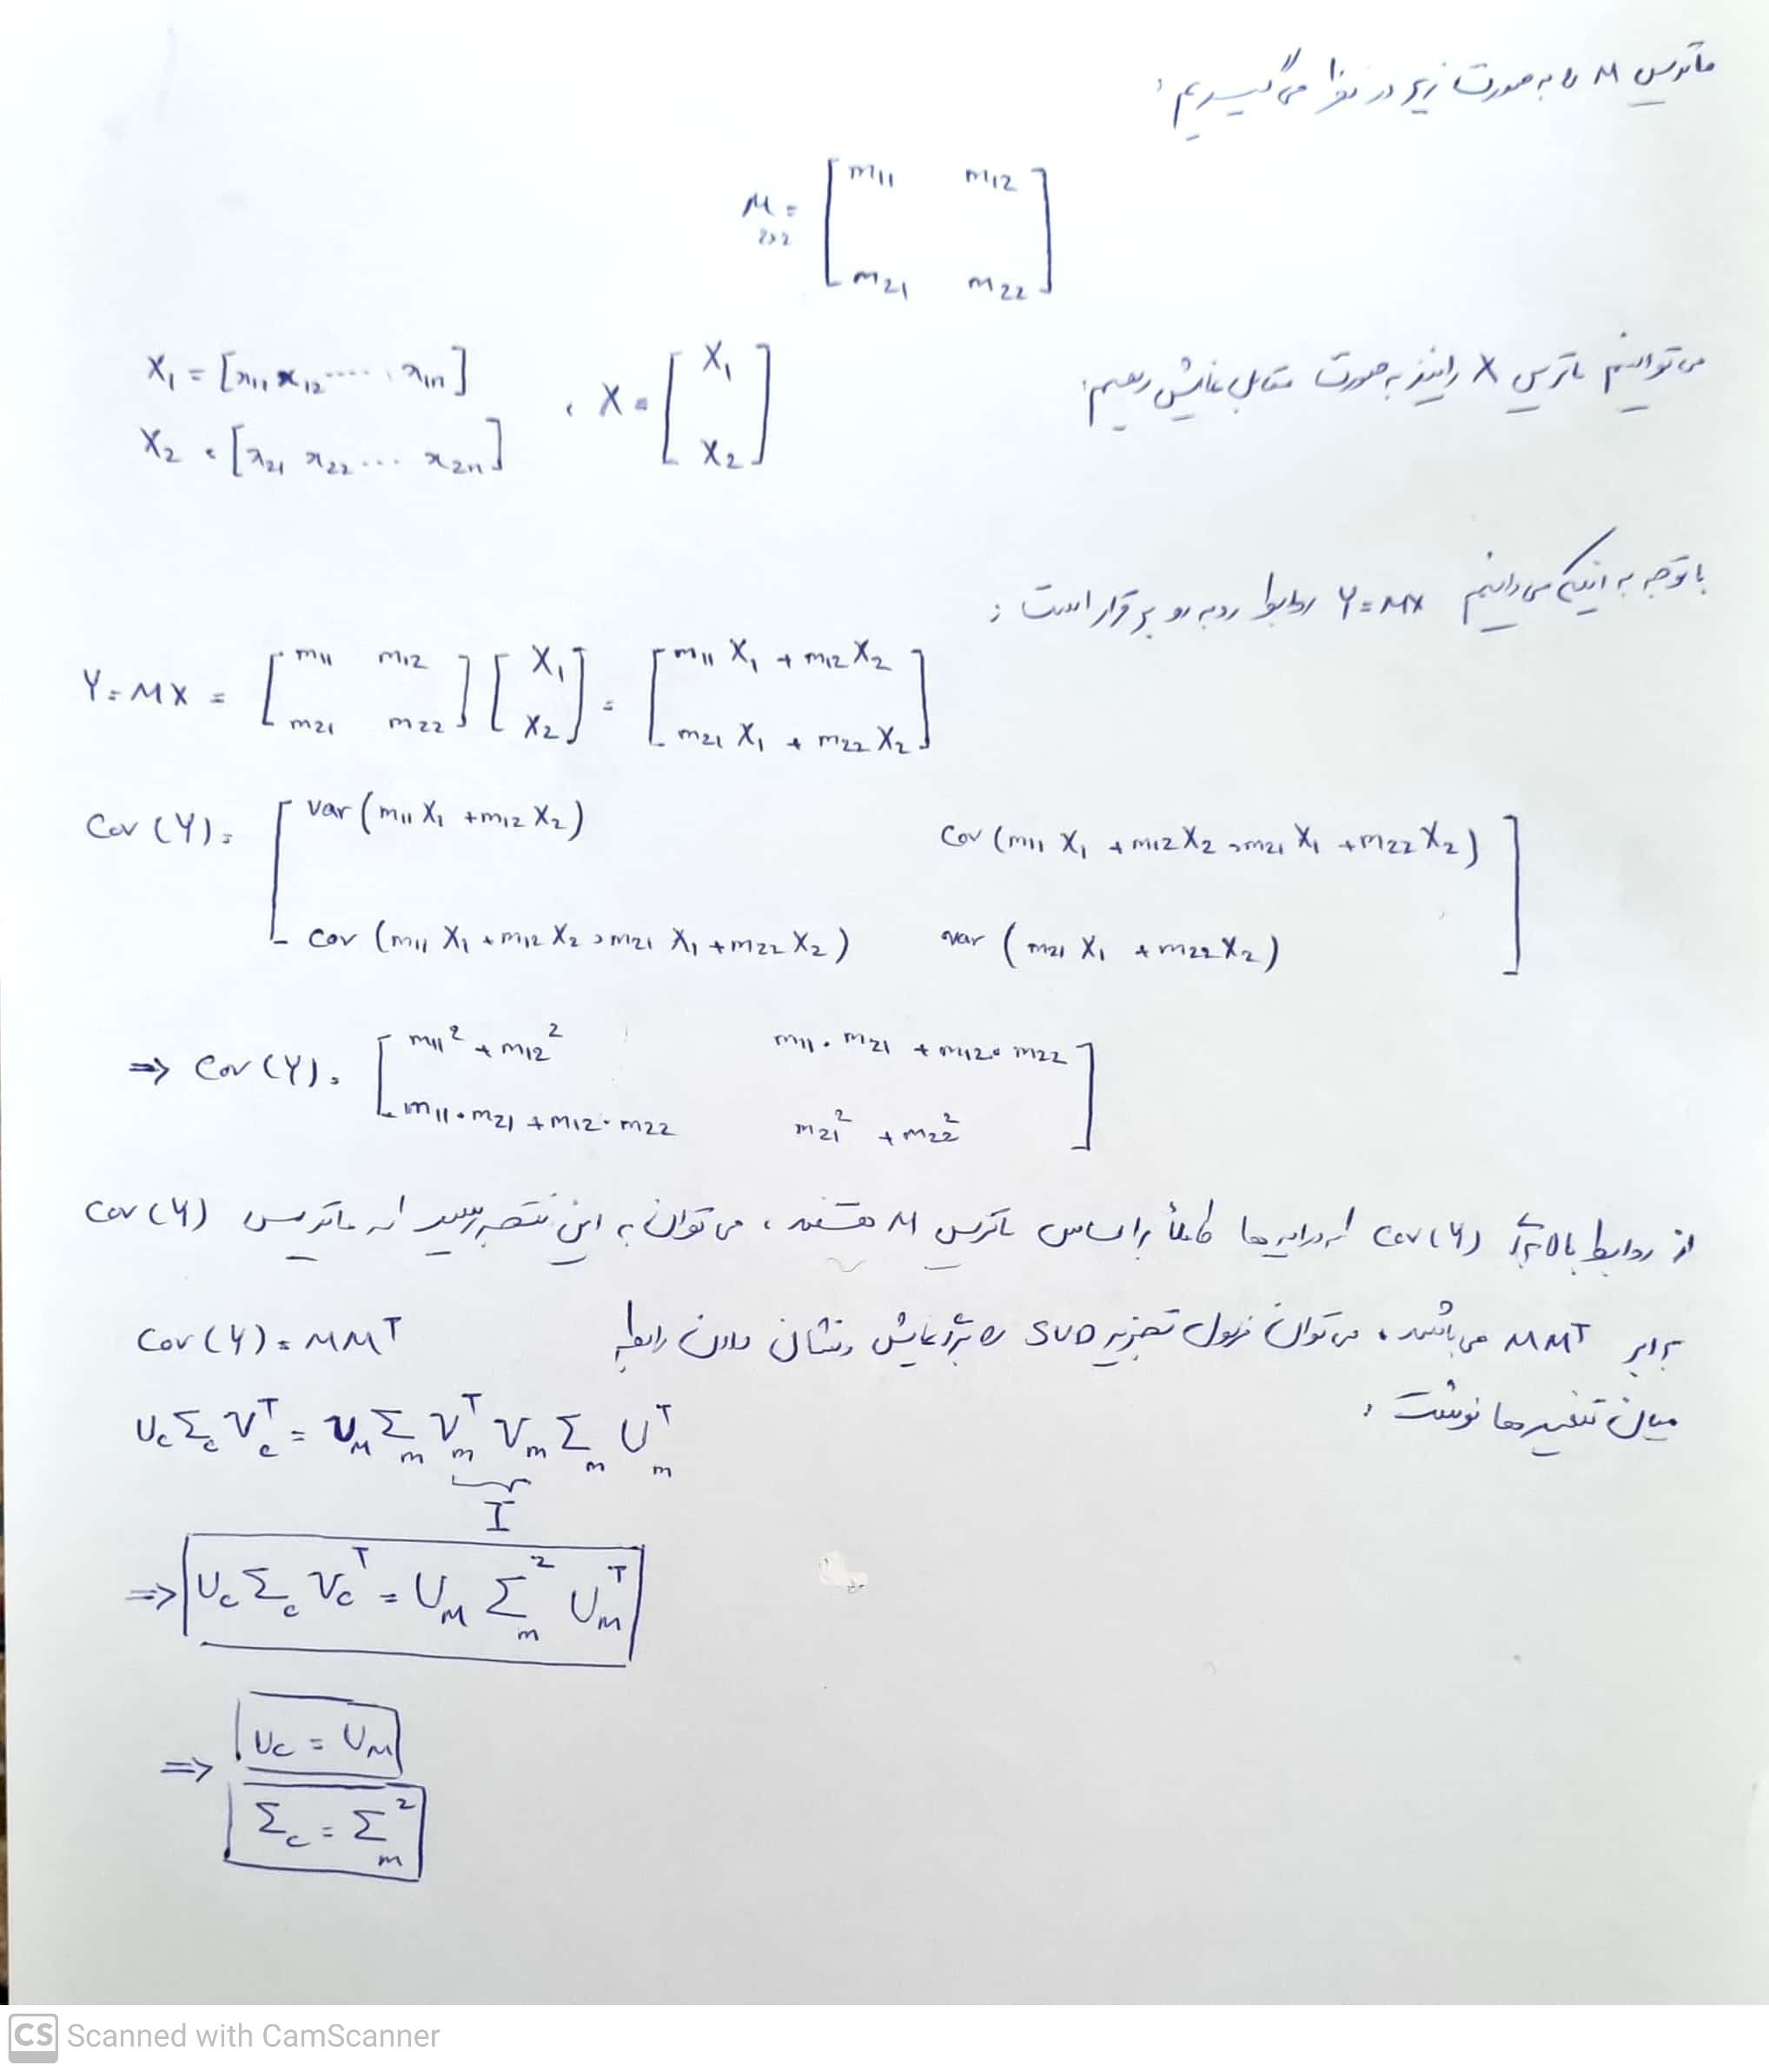 ماتریس M را به صورت زیر در نظر می گیریم :
M = [ m11 m12
2×2
m21 m22 ]
می توانیم ماتریس X را نیز به صورت مقابل نمایش دهیم:
X1 = [x11 x12 ..... x1n] , X = [ X1
X2 = [x21 x22 ... x2n] X2 ]
با توجه به اینکه می دانیم Y = MX روابط رو به رو برقرار است :
Y = MX = [ m11 m12 ; m21 m22 ] [ X1 ; X2 ] = [ m11 X1 + m12 X2 ; m21 X1 + m22 X2 ]
Cov (Y) = [ var (m11 X1 + m12 X2) cov (m11 X1 + m12 X2 , m21 X1 + m22 X2)
cov (m11 X1 + m12 X2 , m21 X1 + m22 X2) var (m21 X1 + m22 X2) ]
⇒ Cov (Y) = [ m11² + m12² m11 . m21 + m12 . m22
m11 . m21 + m12 . m22 m21² + m22² ]
از روابط بالا برای Cov (Y) که درایه ها کاملاً بر اساس ماتریس M هستند ، می توان به این نتیجه رسید که ماتریس Cov (Y)
برابر MMᵀ می باشد ، می توان فرمول تجزیه SVD را برای نمایش و نشان دادن رابطه
میان متغیر ها نوشت :
Cov (Y) = MMᵀ
Uc Σc Vcᵀ = UM Σm Vmᵀ Vm Σm Umᵀ
I
⇒ Uc Σc Vcᵀ = UM Σm² Umᵀ
⇒ Uc = UM
Σc = Σm²
CS Scanned with CamScanner